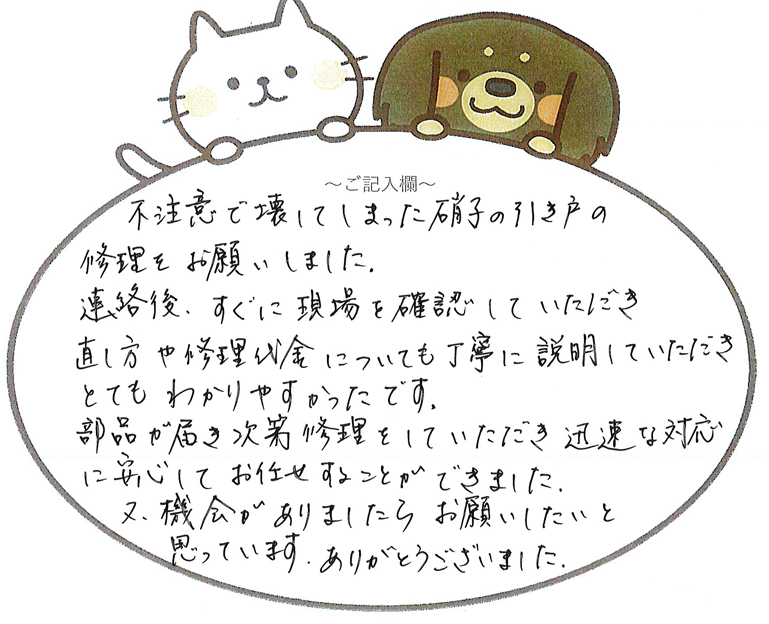 ～ご記入欄～
不注意で壊してしまった硝子の引き戸の
修理をお願いしました。
連絡後、すぐに現場を確認していただき
直し方や修理代金についても丁寧に説明していただき
とてもわかりやすかったです。
部品が届き次第修理をしていただき迅速な対応
に安心してお任せすることができました。
又、機会がありましたらお願いしたいと
思っています。ありがとうございました。